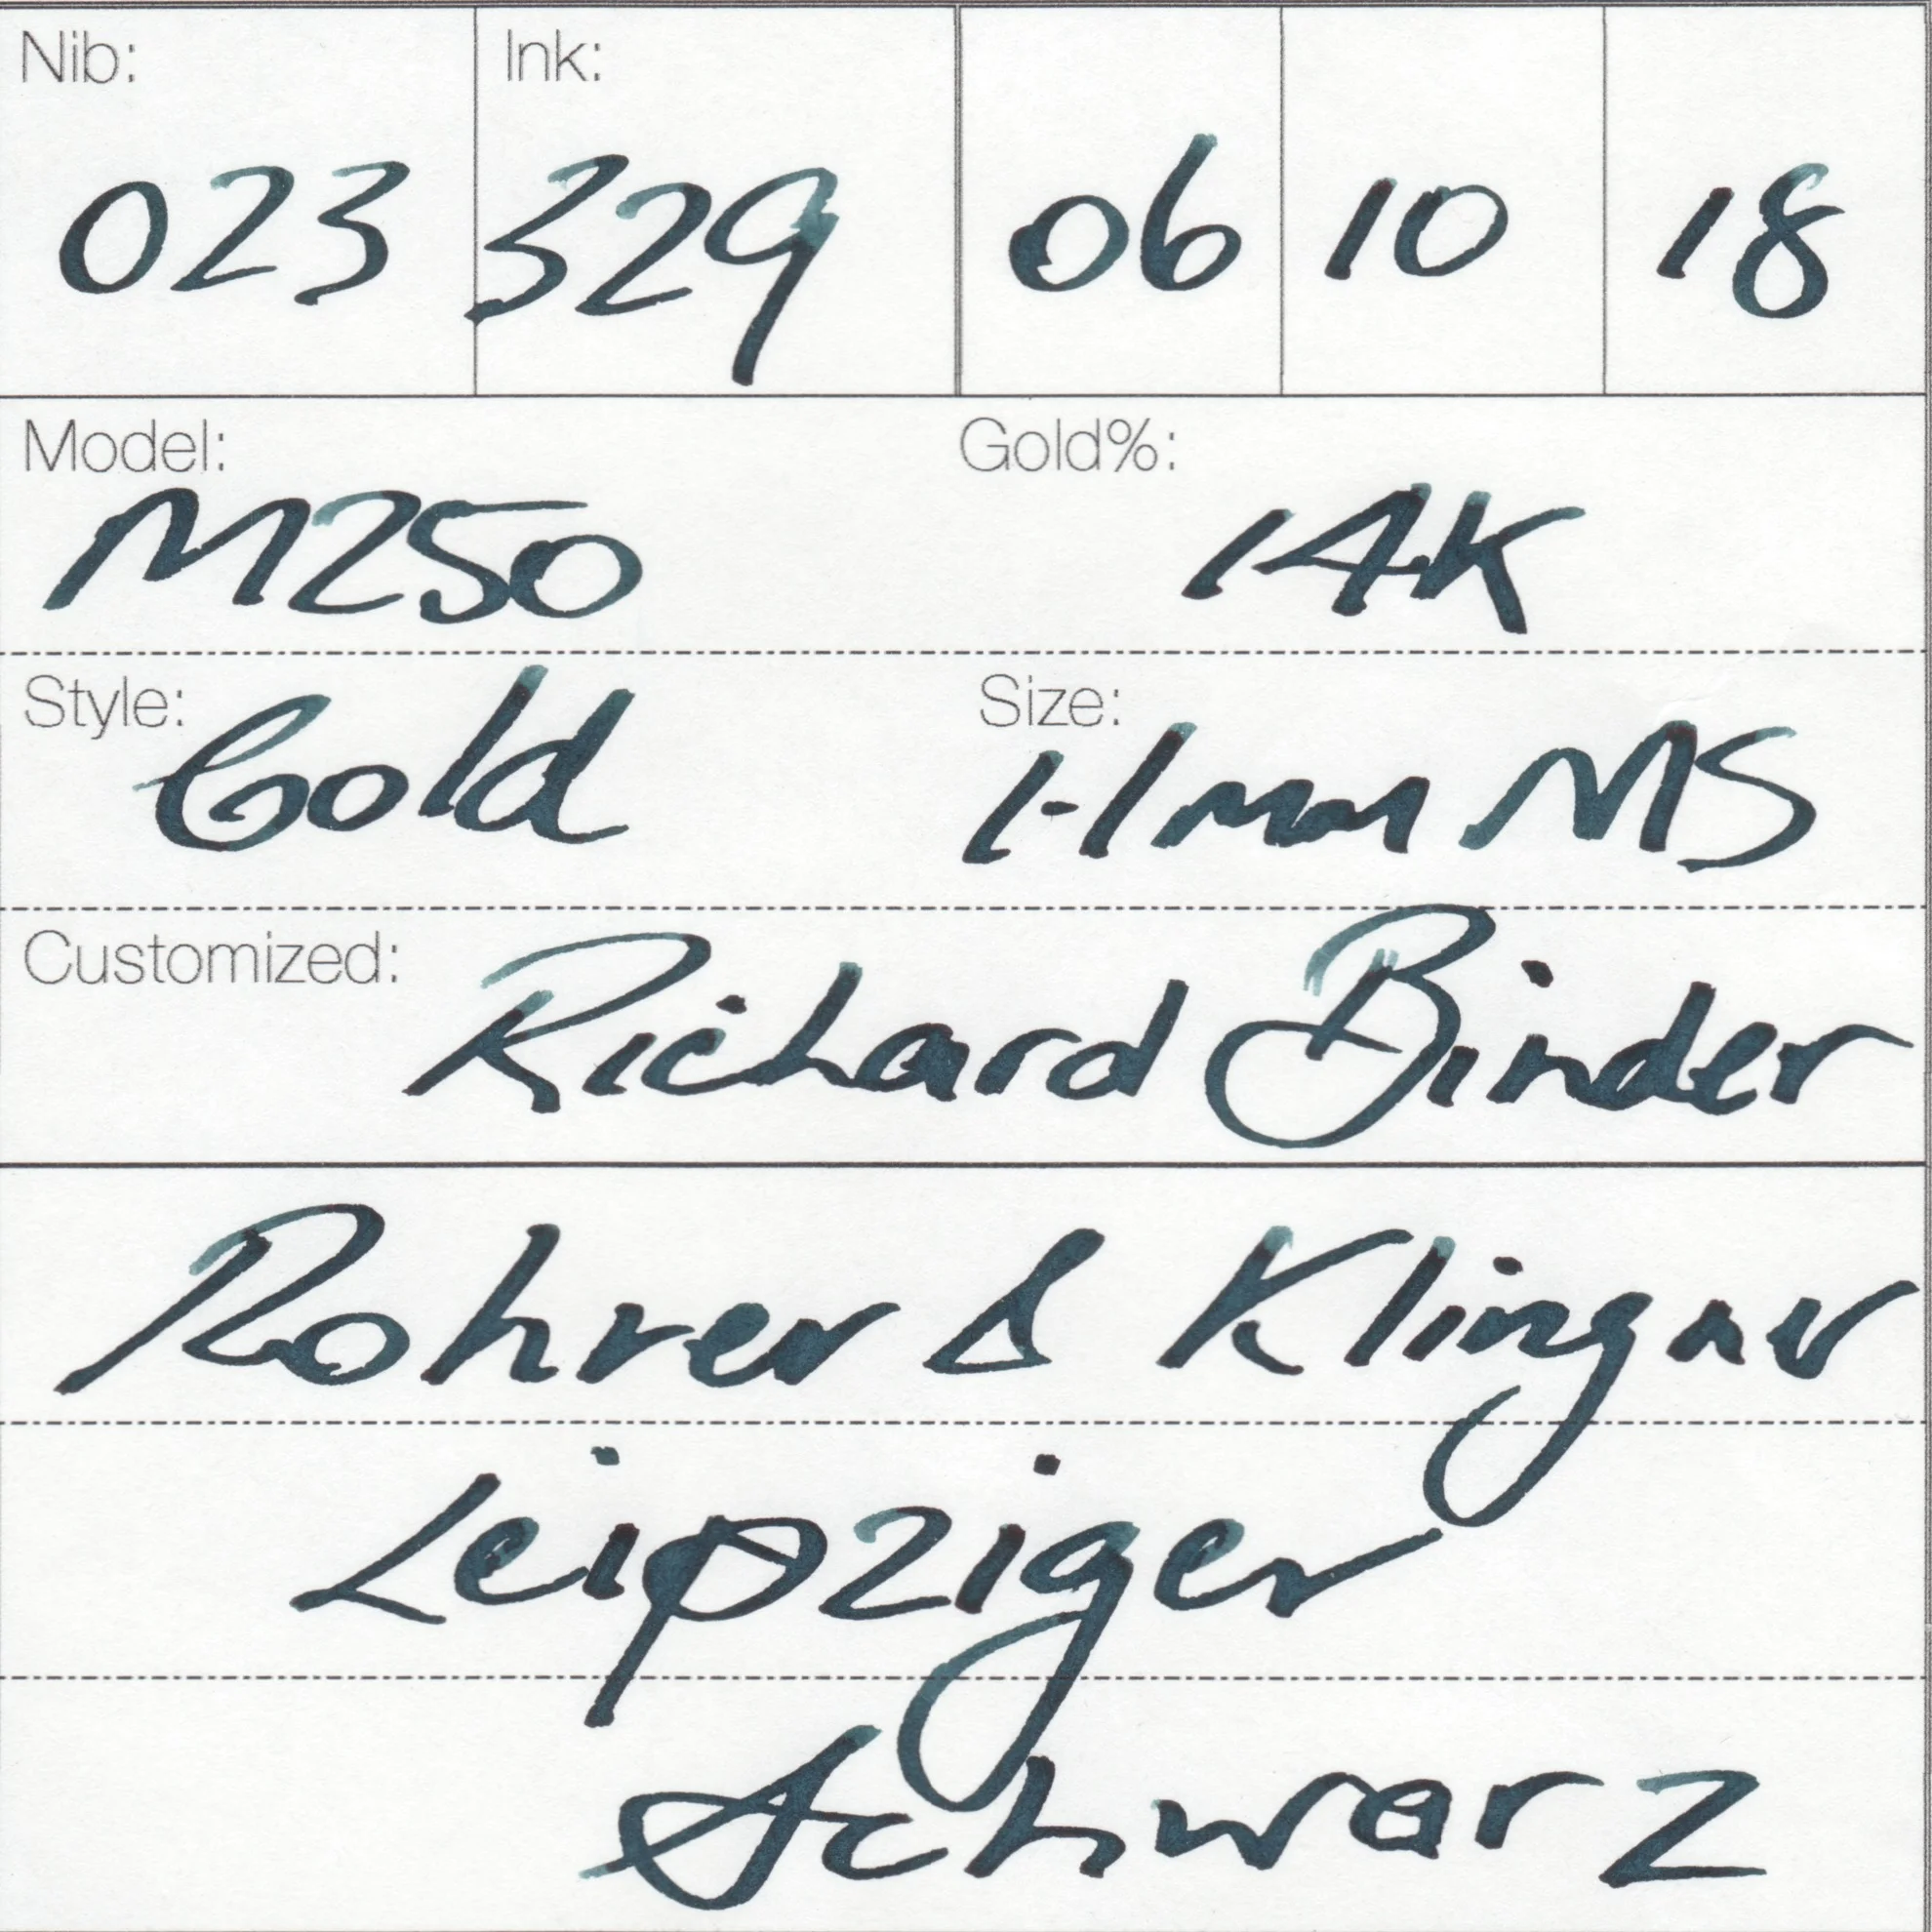 Nib: Ink:
023 329 06 10 18
Model: Gold%:
M250 14K
Style: Gold Size: 1.1mm MS
Customized: Richard Binder
Rohrer & Klingner
Leipziger
Schwarz